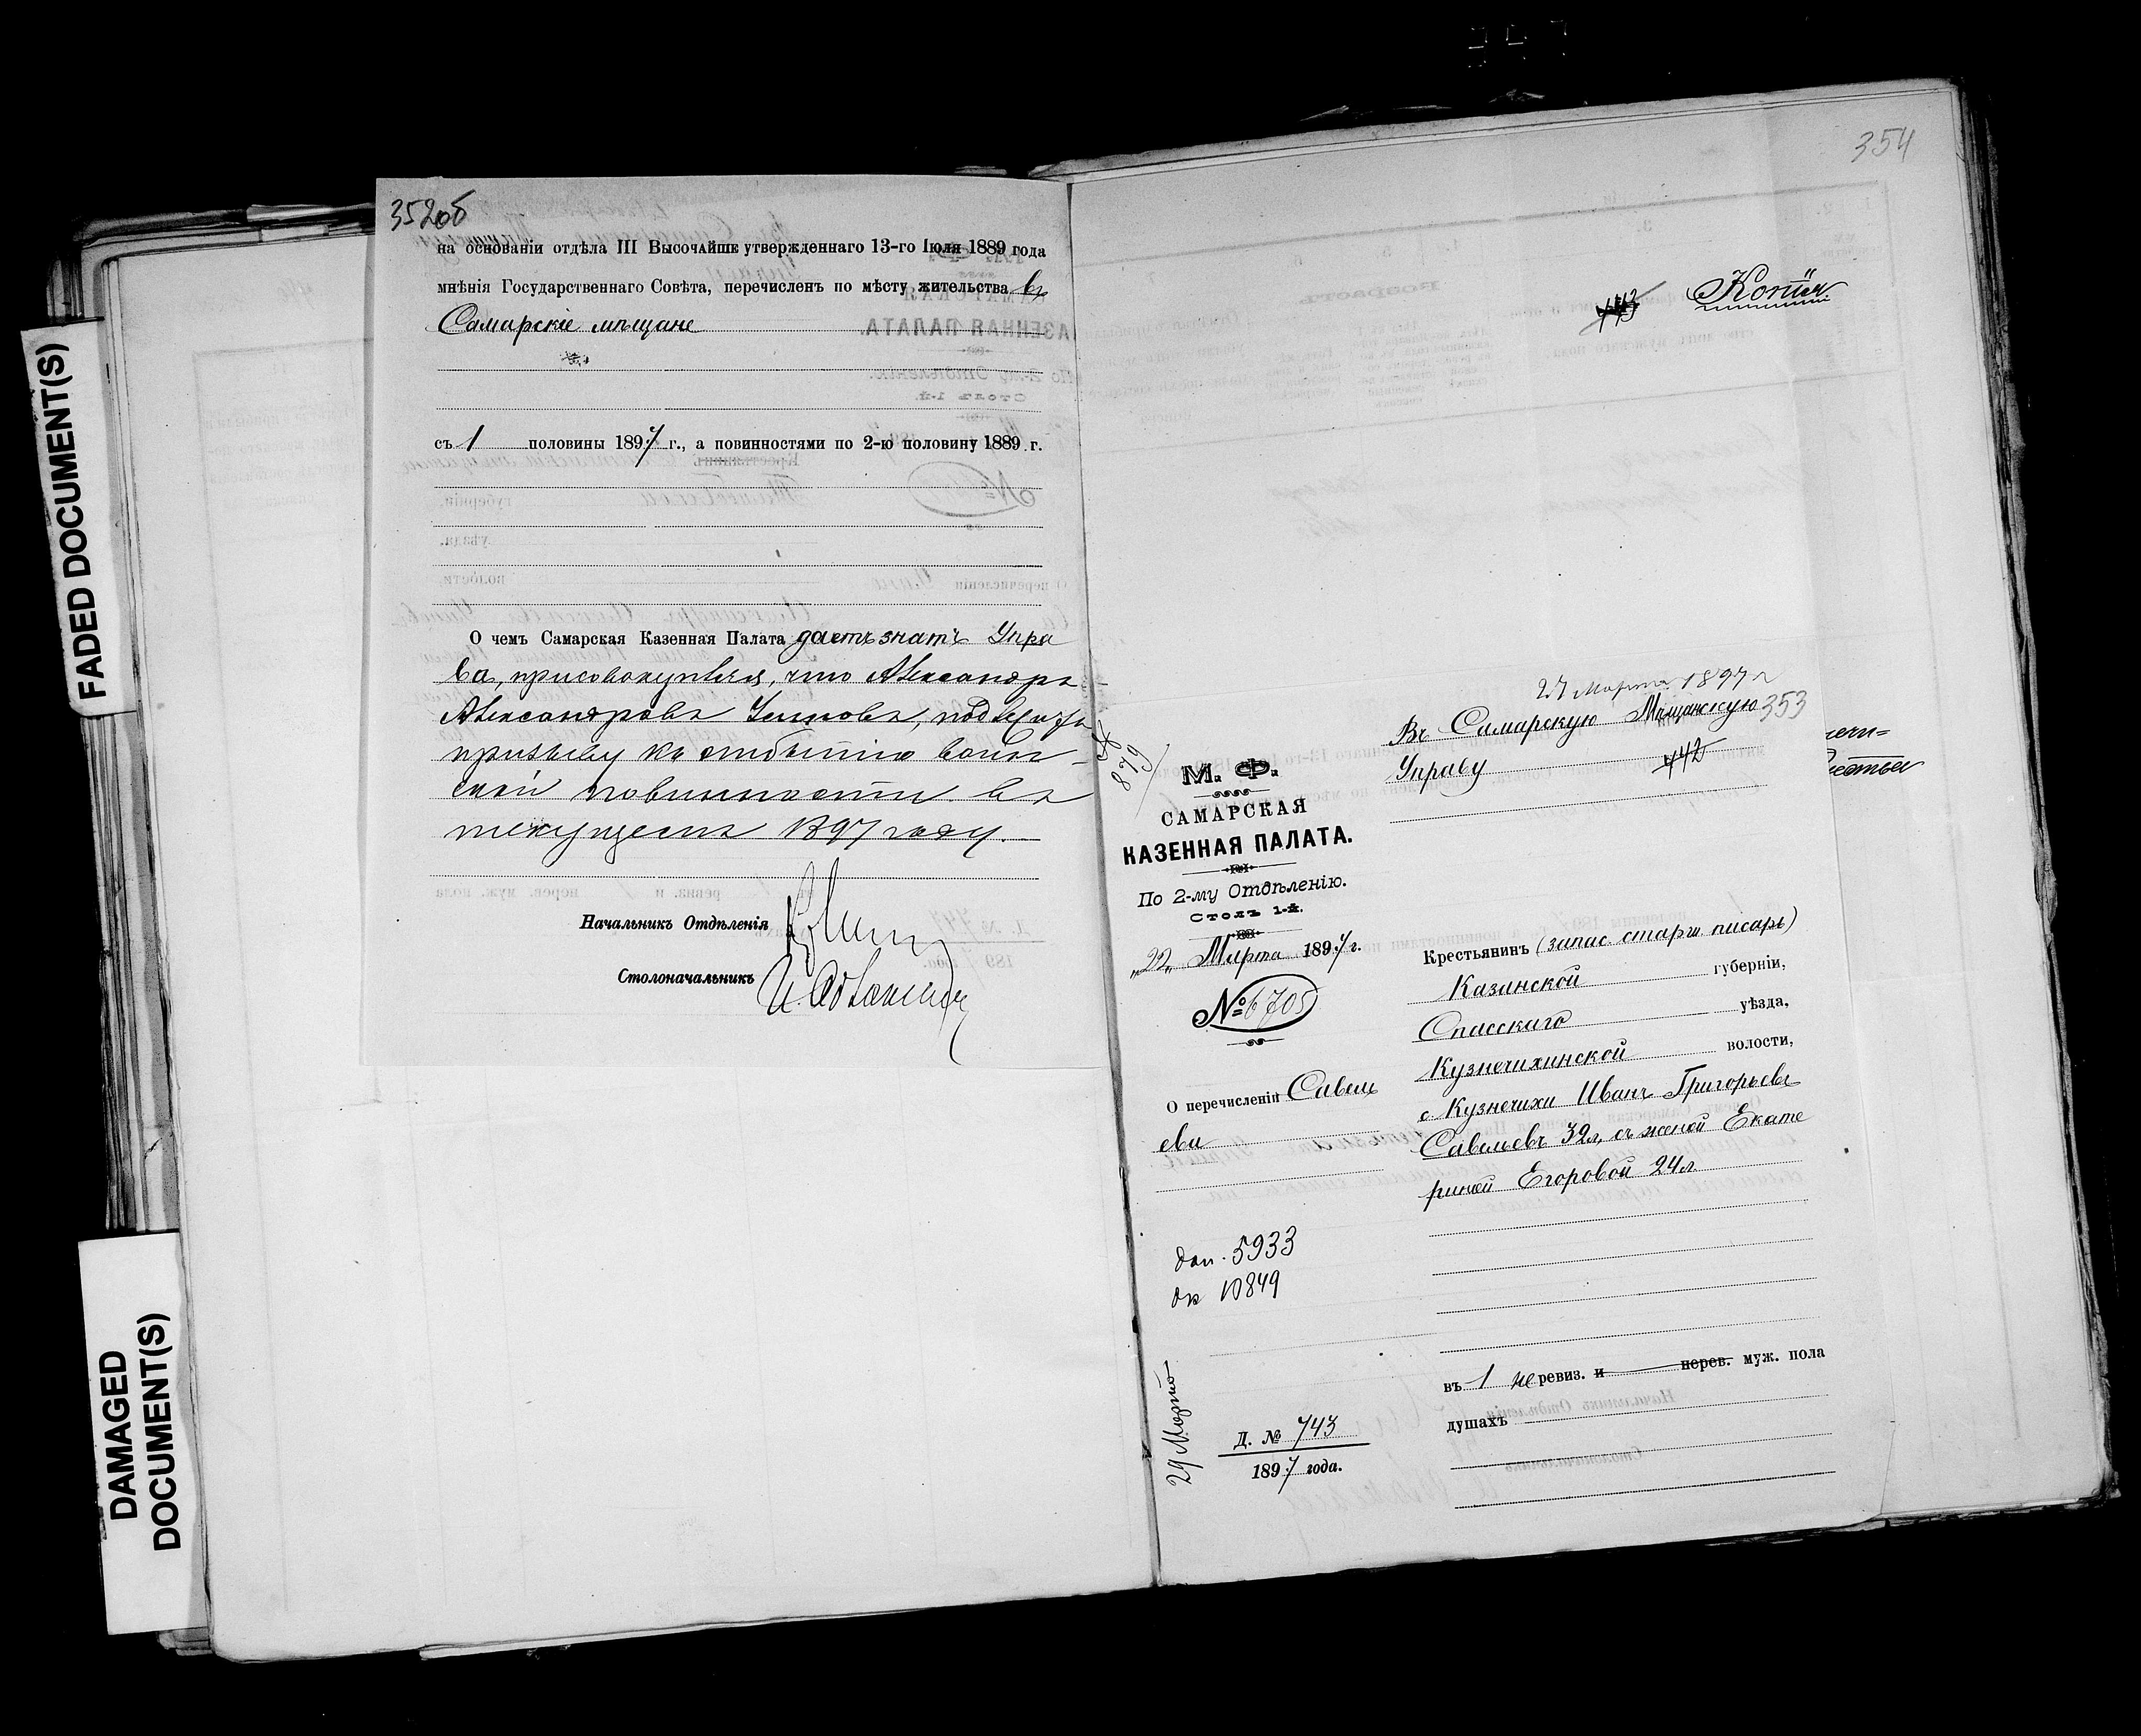 FADED DOCUMENT(S)
DAMAGED
DOCUMENT(S)
352об
на основаніи отдѣла III Высочайше утвержденнаго 13-го Іюля 1889 года
мнѣнія Государственнаго Совѣта, перечисленъ по мѣсту жительства въ
Самарскіе мѣщане
съ 1 половины 1897 г., а повинностями по 2-ю половину 1889 г.
О чемъ Самарская Казенная Палата даетъ знать Упра
ва, присовокупляя, что Александръ
Александровъ подлежитъ
призыву къ отбытію воин
ской повинности въ
текущемъ 1897 году.
Начальникъ Отдѣленія
Столоначальникъ
354
443
Копія
27 Марта 1897 г
Въ Самарскую Мѣщанскую 353
Управу 442
879
М. Ф.
САМАРСКАЯ
КАЗЕННАЯ ПАЛАТА.
По 2-му Отдѣленію.
Столъ 1-й.
„22„ Марта 1897 г.
№ 6705
О перечисленіи Савель
ева
5933
10849
29 Марта
Д. № 743
1897 года.
Крестьянинъ (запас. старш. писарь)
Казанской губерніи,
Спасскаго уѣзда,
Кузнечихинской волости,
с. Кузнечихи Иванъ Григорьевъ
Савельевъ 32 л, съ женой Екате
риной Егоровой 24 л
въ 1 неревиз. и перев. муж. пола
душахъ